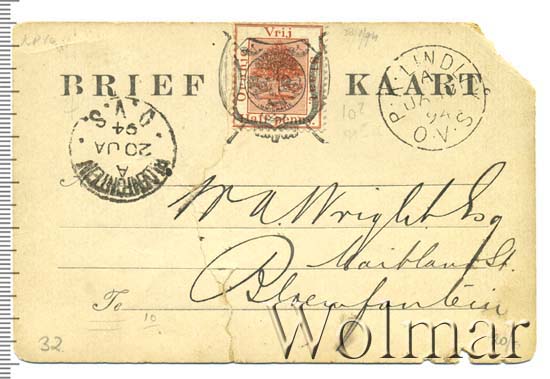 BRIEF KAART.
Vrij
Half Penny.
LINDLEY
O.V.S.
BLOEMFONTEIN
A
20 JA
94
O.V.S.
W A Wright Esq
Maitland St.
Bloemfontein
To
10
32
Wolmar